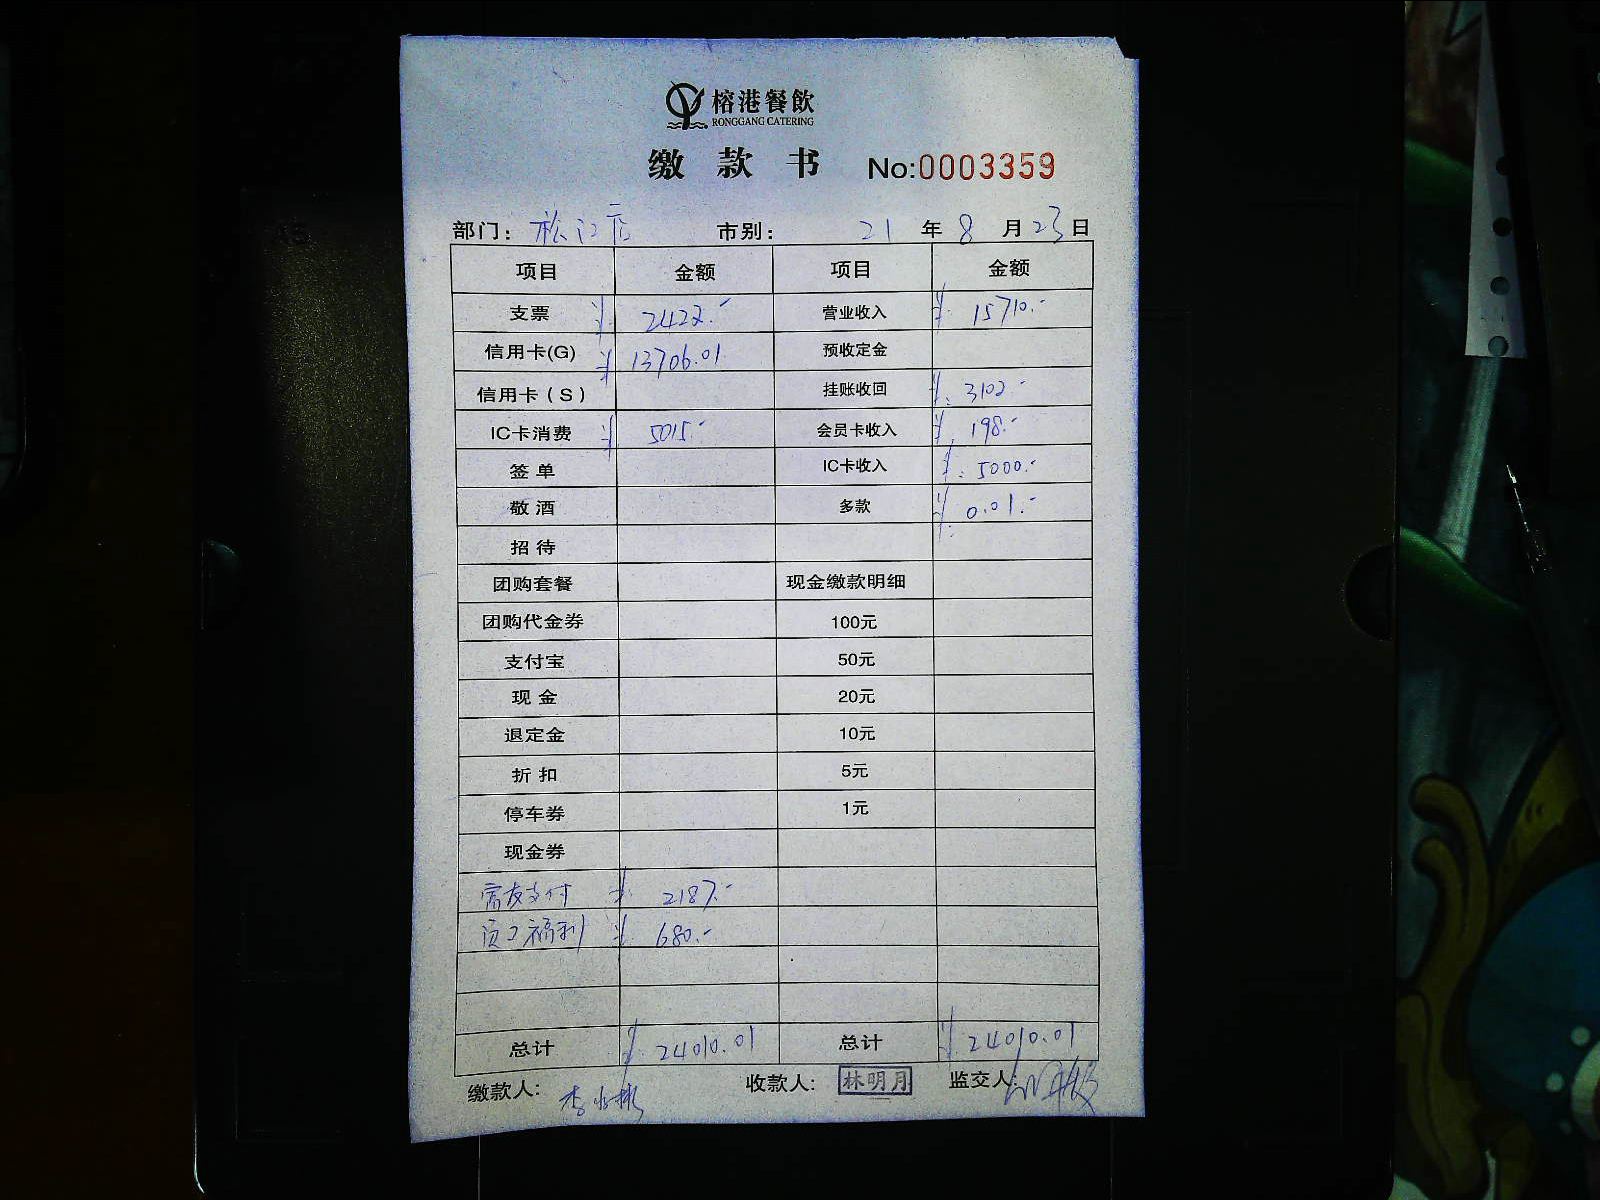 榕港餐飲
RONGGANG CATERING
缴款书 No:0003359
部门：松江店 市别： 21年8月23日
项目 金额 项目 金额
支票 ¥2422.- 营业收入 ¥15710.-
信用卡(G) ¥13706.01 预收定金
信用卡（S） 挂账收回 ¥3102.-
IC卡消费 ¥5015.- 会员卡收入 ¥198.-
签单 IC卡收入 ¥5000.-
敬酒 多款 ¥0.01.-
招待
团购套餐 现金缴款明细
团购代金券 100元
支付宝 50元
现金 20元
退定金 10元
折扣 5元
停车券 1元
现金券
支付 ¥2187.-
员工福利 ¥680.-
总计 ¥24010.01 总计 ¥24010.01
缴款人： 李 收款人：林明月 监交人：